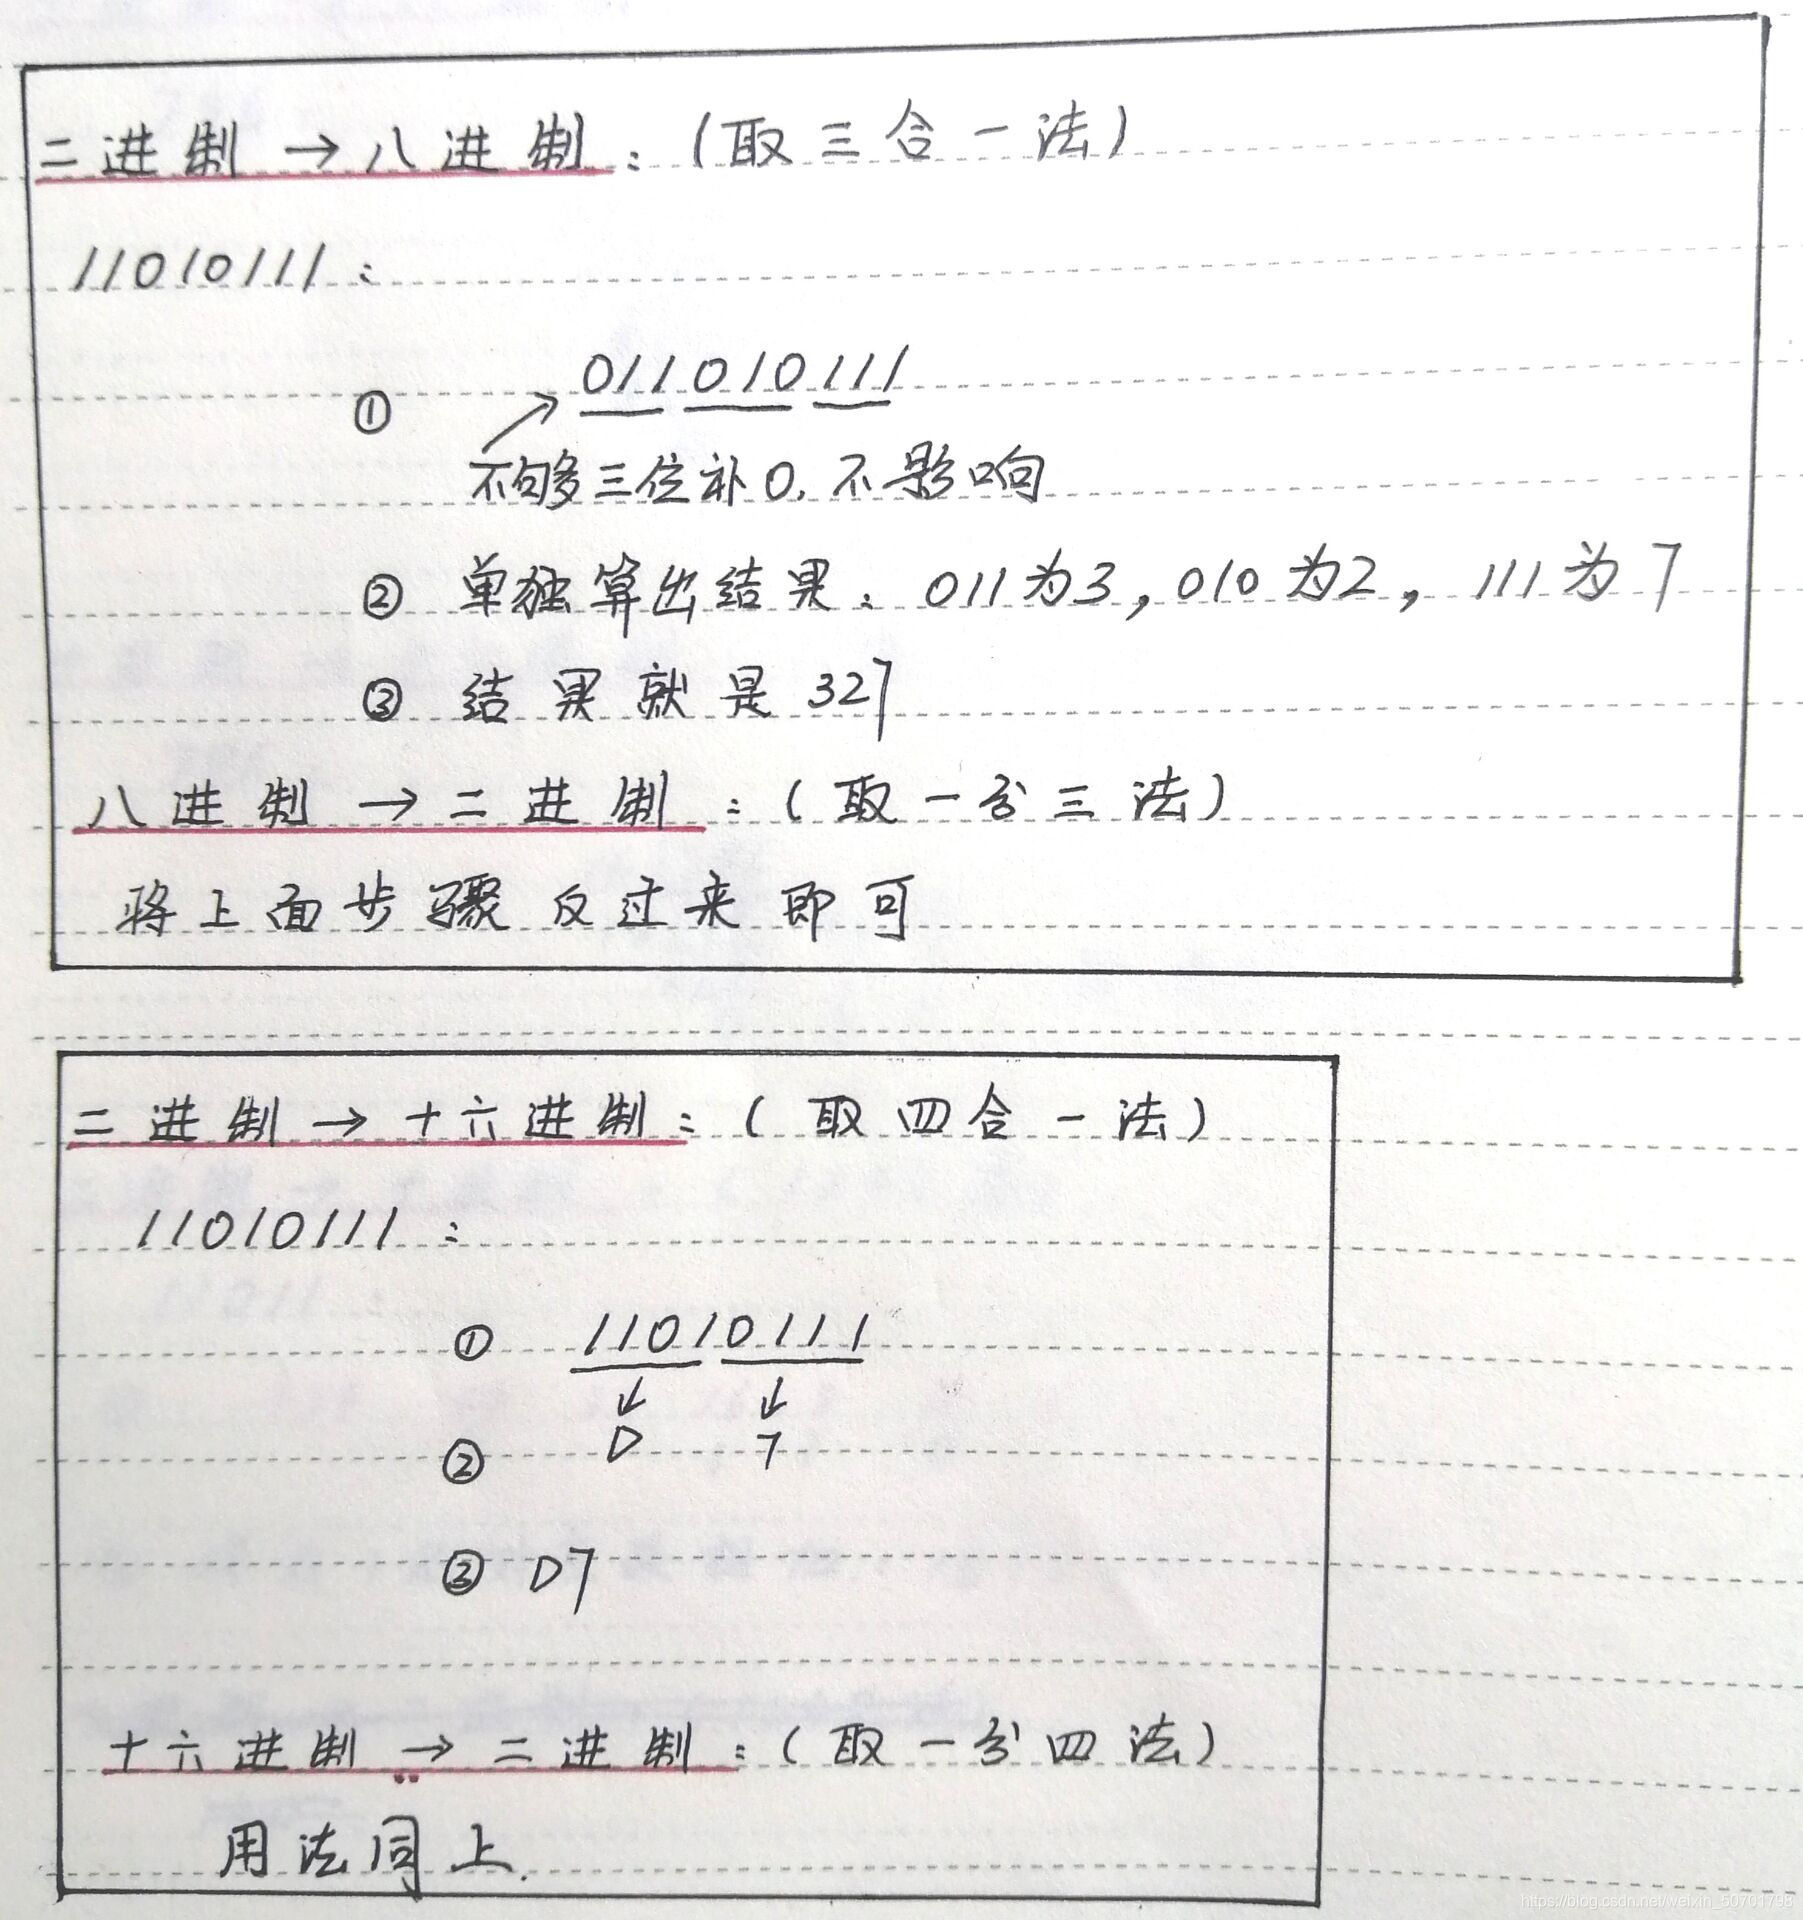 二进制→八进制：（取三合一法）
11010111：
① 011010111
不够三位补0，不影响
② 单独算出结果：011为3，010为2，111为7
③ 结果就是327
八进制→二进制：（取一分三法）
将上面步骤反过来即可
二进制→十六进制：（取四合一法）
11010111：
① 11010111
② D 7
③ D7
十六进制→二进制：（取一分四法）
用法同上.
https://blog.csdn.net/weixin_50701798